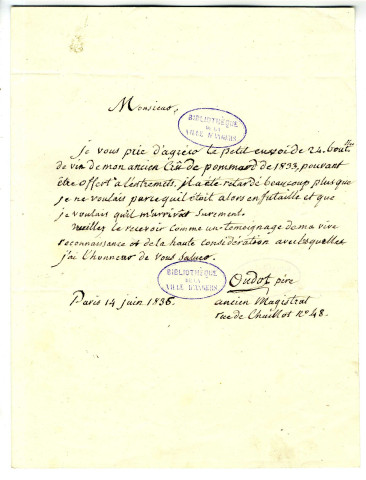 Monsieur,
BIBLIOTHÈQUE
DE LA
VILLE D'ANGERS
je vous prie d'agréer le petit envoi de 24. boutlles
de vin de mon ancien de pommard de 1833, pouvant
être offert a l'extremets. il a été retardé beaucoup plus que
je ne voulais parce qu'il étoit alors en futaille et que
je voulais qu'il m'arrivat surement.
veuillez le recevoir comme un temoignage de ma vive
reconnaissance et de la haute consideration avec lesquelles
j'ai l'honneur de vous saluer.
BIBLIOTHÈQUE
DE LA
VILLE D'ANGERS
Oudot père
Paris 14 juin 1836. ancien Magistrat
rue de Chaillot no 48.